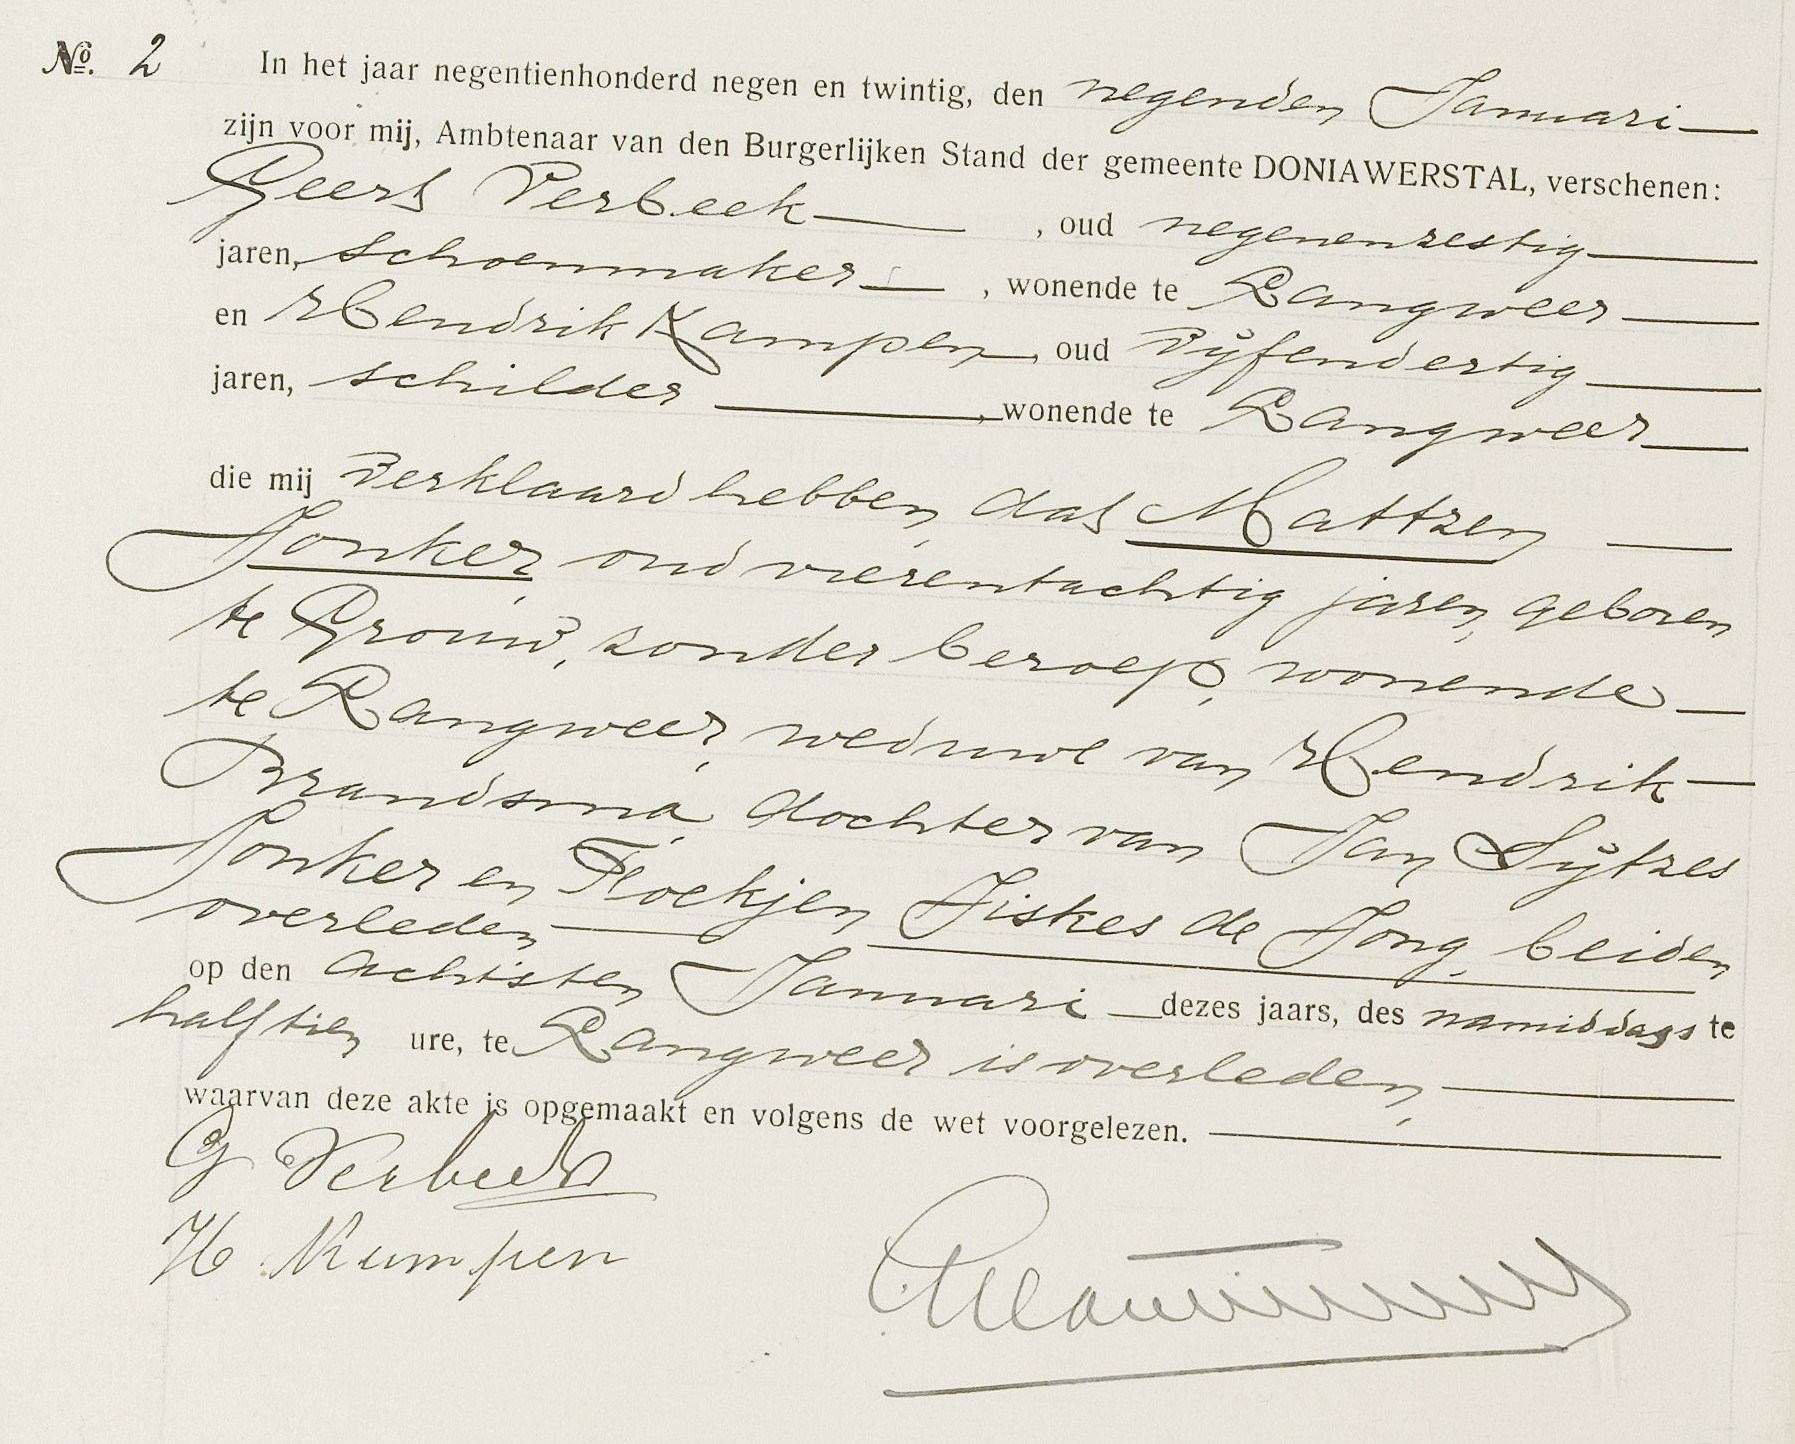 No. 2 In het jaar negentienhonderd negen en twintig, den negenden Januari
zijn voor mij, Ambtenaar van den Burgerlijken Stand der gemeente DONIAWERSTAL, verschenen:
Geert Verbeek , oud negenenzestig
jaren, schoenmaker , wonende te Langweer
en Hendrik Kampen, oud vijfendertig
jaren, schilder , wonende te Langweer
die mij verklaard hebben, dat Mattzen
Jonker, oud vierentachtig jaren, geboren
te Grouw, zonder beroep, wonende
te Langweer, weduwe van Hendrik
Brandsma, dochter van Jan Sijtzes
Jonker en Floekjen Jiskes de Jong, beiden
overleden
op den achtsten Januari dezes jaars, des namiddags te
half tien ure, te Langweer is overleden,
waarvan deze akte is opgemaakt en volgens de wet voorgelezen.
G Verbeek
H Kampen